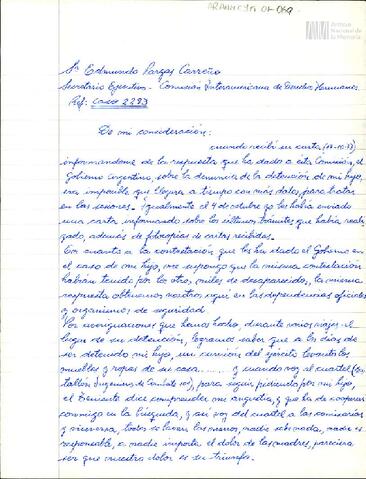 Archivo
Nacional de
la Memoria
Sr Edmundo Vargas Carreño
Secretario Ejecutivo - Comisión Interamericana de Derechos Humanos
Ref: Caso 2283
De mi consideración:
cuando recibí su carta
informandome de la respuesta que ha dado a esta Comisión, el
Gobierno Argentino, sobre la denuncia de la detención de mi hijo,
era imposible que llegara a tiempo con más datos, para tratar
en las sesiones. Igualmente al 4 de octubre ya les había enviado
una carta, informando sobre los últimos trámites que había reali-
zado, además de fotocopias de cartas recibidas.
En cuanto a la contestación que les ha dado el Gobierno en
el caso de mi hijo, me supongo que la misma contestación
habían tenido por los otros, miles de desaparecidos, la misma
respuesta obtuvimos nosotros, aquí en las dependencias oficiales
y organismos de seguridad.
Por averiguaciones que hemos hecho, durante varios viajes al
lugar de su detención, logramos saber que a los días de
ser detenido mi hijo, un camión del ejército levantó los
muebles y ropas de su casa ...... y cuando voy al cuartel (Ba-
tallón Ingenieros de Combate 101), para seguir pidiendo por mi hijo,
el Teniente dice comprender mi angustia, y que ha de cooperar
conmigo en la búsqueda, y así voy del cuartel a las comisarías
y viceversa, todos se lavan las manos, nadie sabe nada, nadie es
responsable, a nadie importa el dolor de las madres, pareciera
ser que nuestro dolor es su triunfo.